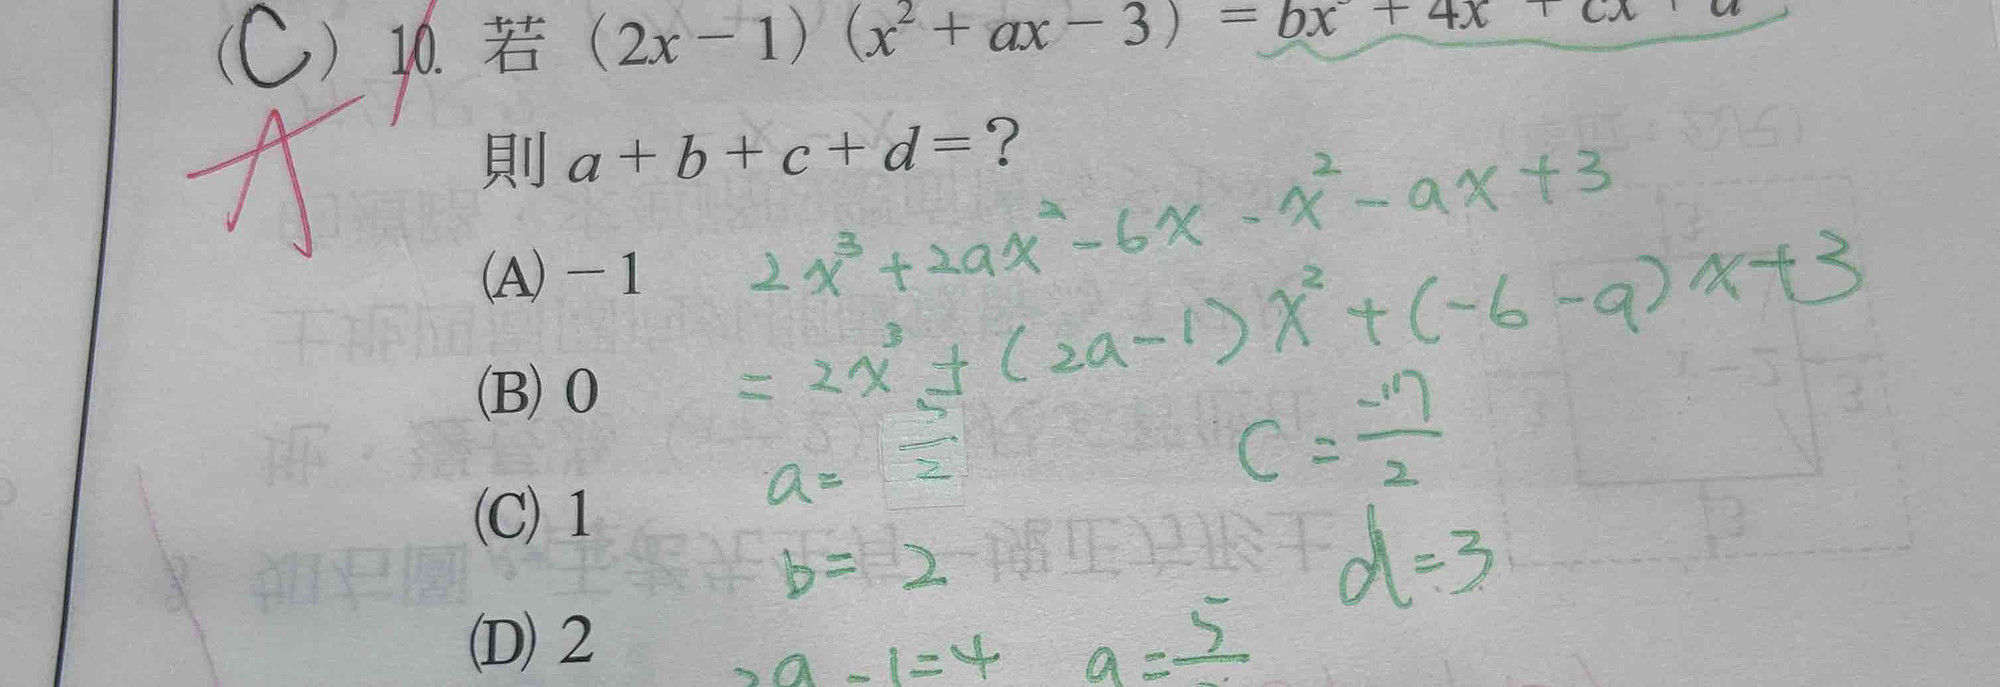 (C) 10. 若 (2x－1)(x²＋ax－3)＝bx³＋4x²＋cx＋d
A
則 a＋b＋c＋d＝?
(A)－1
2x³+2ax²-6x-x²-ax+3
=2x³+(2a-1)x²+(-6-a)x+3
(B) 0
a=5/2
c=-17/2
(C) 1
b=2
d=3
(D) 2
2a-1=4 a=5